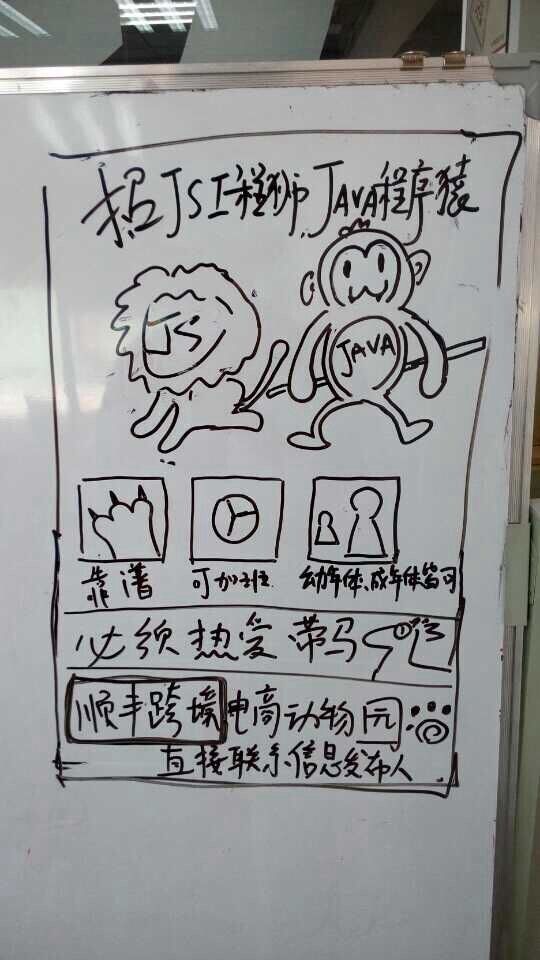 招JS工程狮 JAVA程序猿
JS
JAVA
靠谱 可加班 幼年体、成年体皆可
必须热爱带马
顺丰跨境电商动物园
直接联系信息发布人